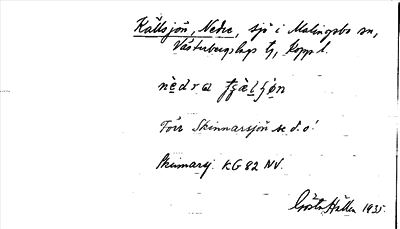 Källsjön, Nedre, sjö i Malingsbo sn,
Västerbergslags tg, Kopp. l.
nèdra
Förr Skinnarsjön se d. o.!
Primärkj. KG 82 NV.
Gösta Hallen 1935.